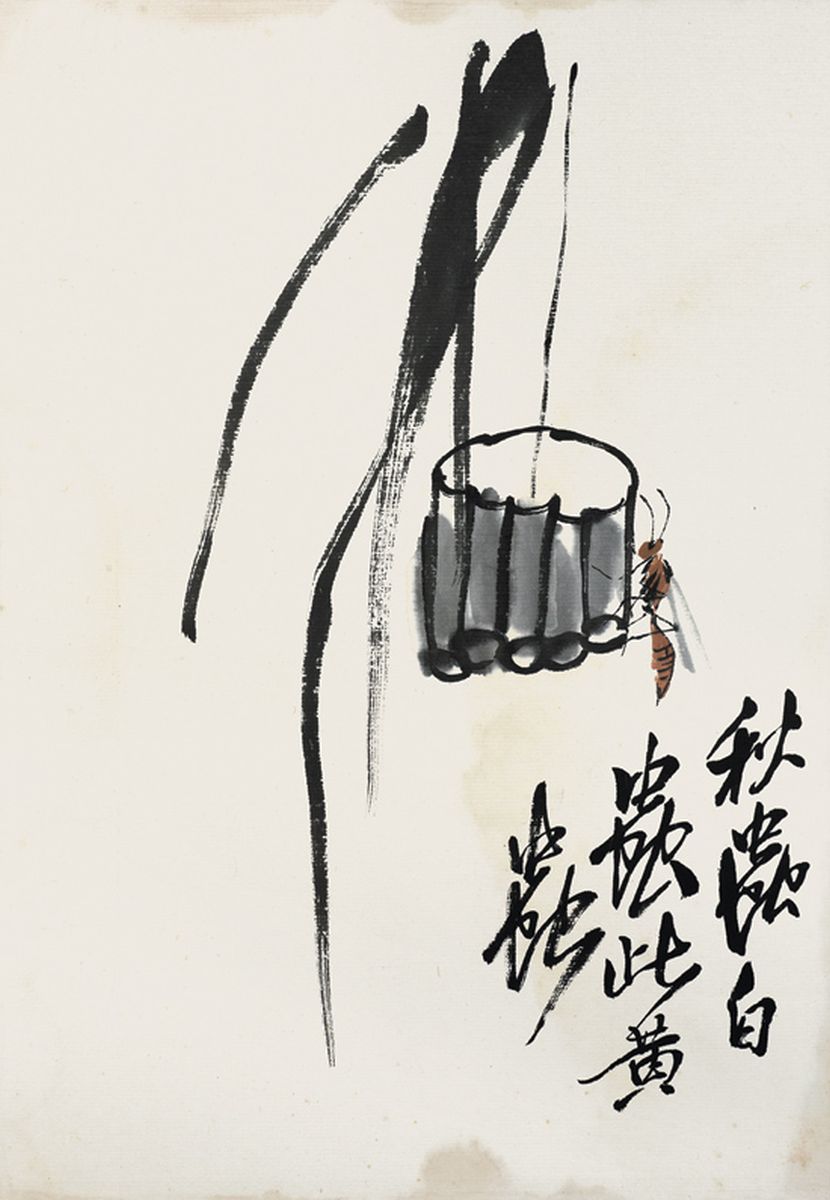 秋蟲白
蟲此黃
蟲